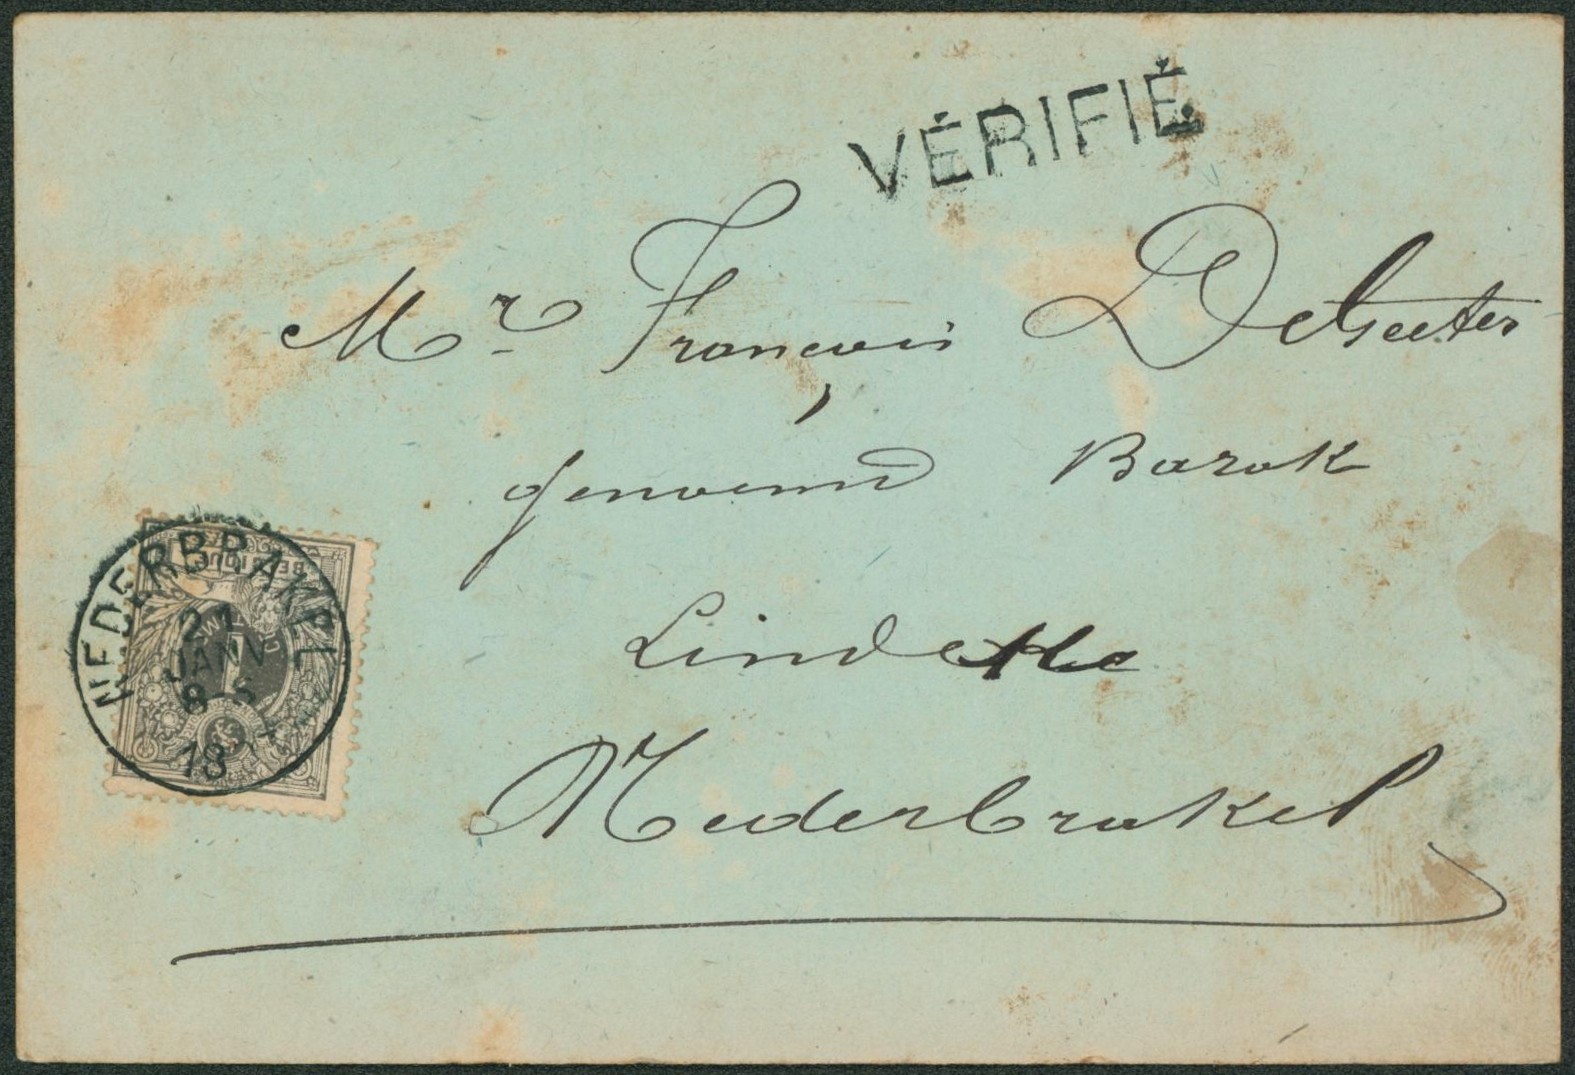 VÉRIFIÉ
Mr François DeGeeter
genoemd Barok
Lindethe
Nederbrakel
NEDERBRAKEL
21
JANV
8-S
18
BELGIQUE
1